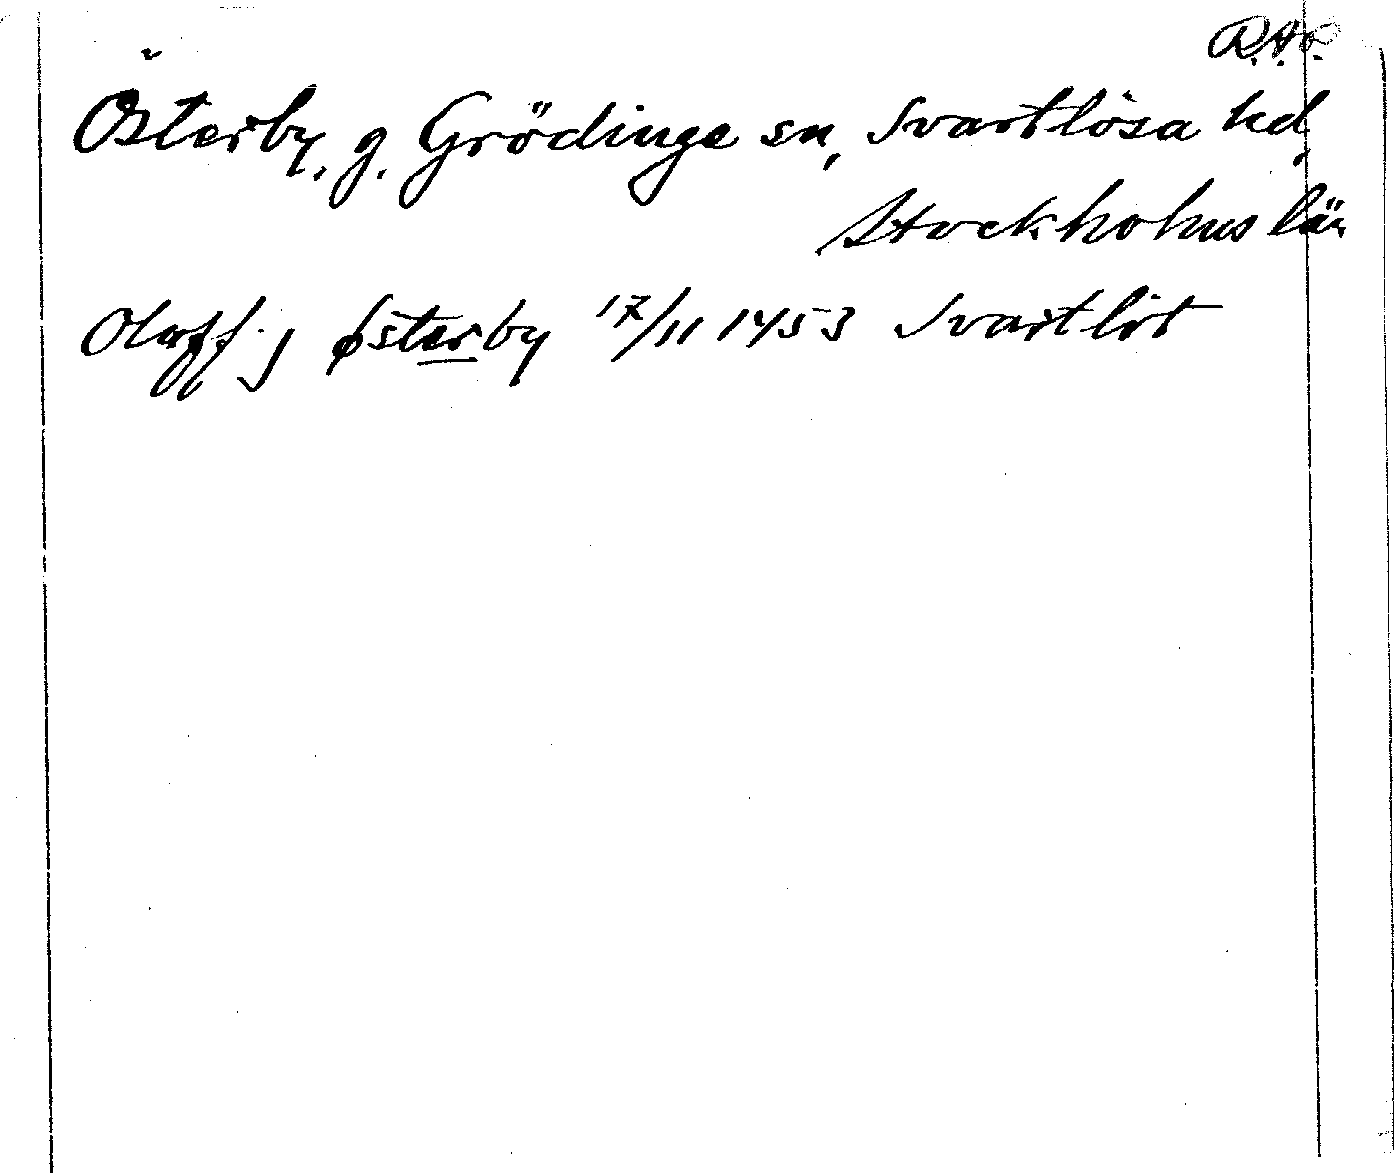 R.A.P.
Österby, g. Grödinge sn, Svartlösa hd,
Stockholms län
Oloff j østerby 17/11 1453 Svartlöt